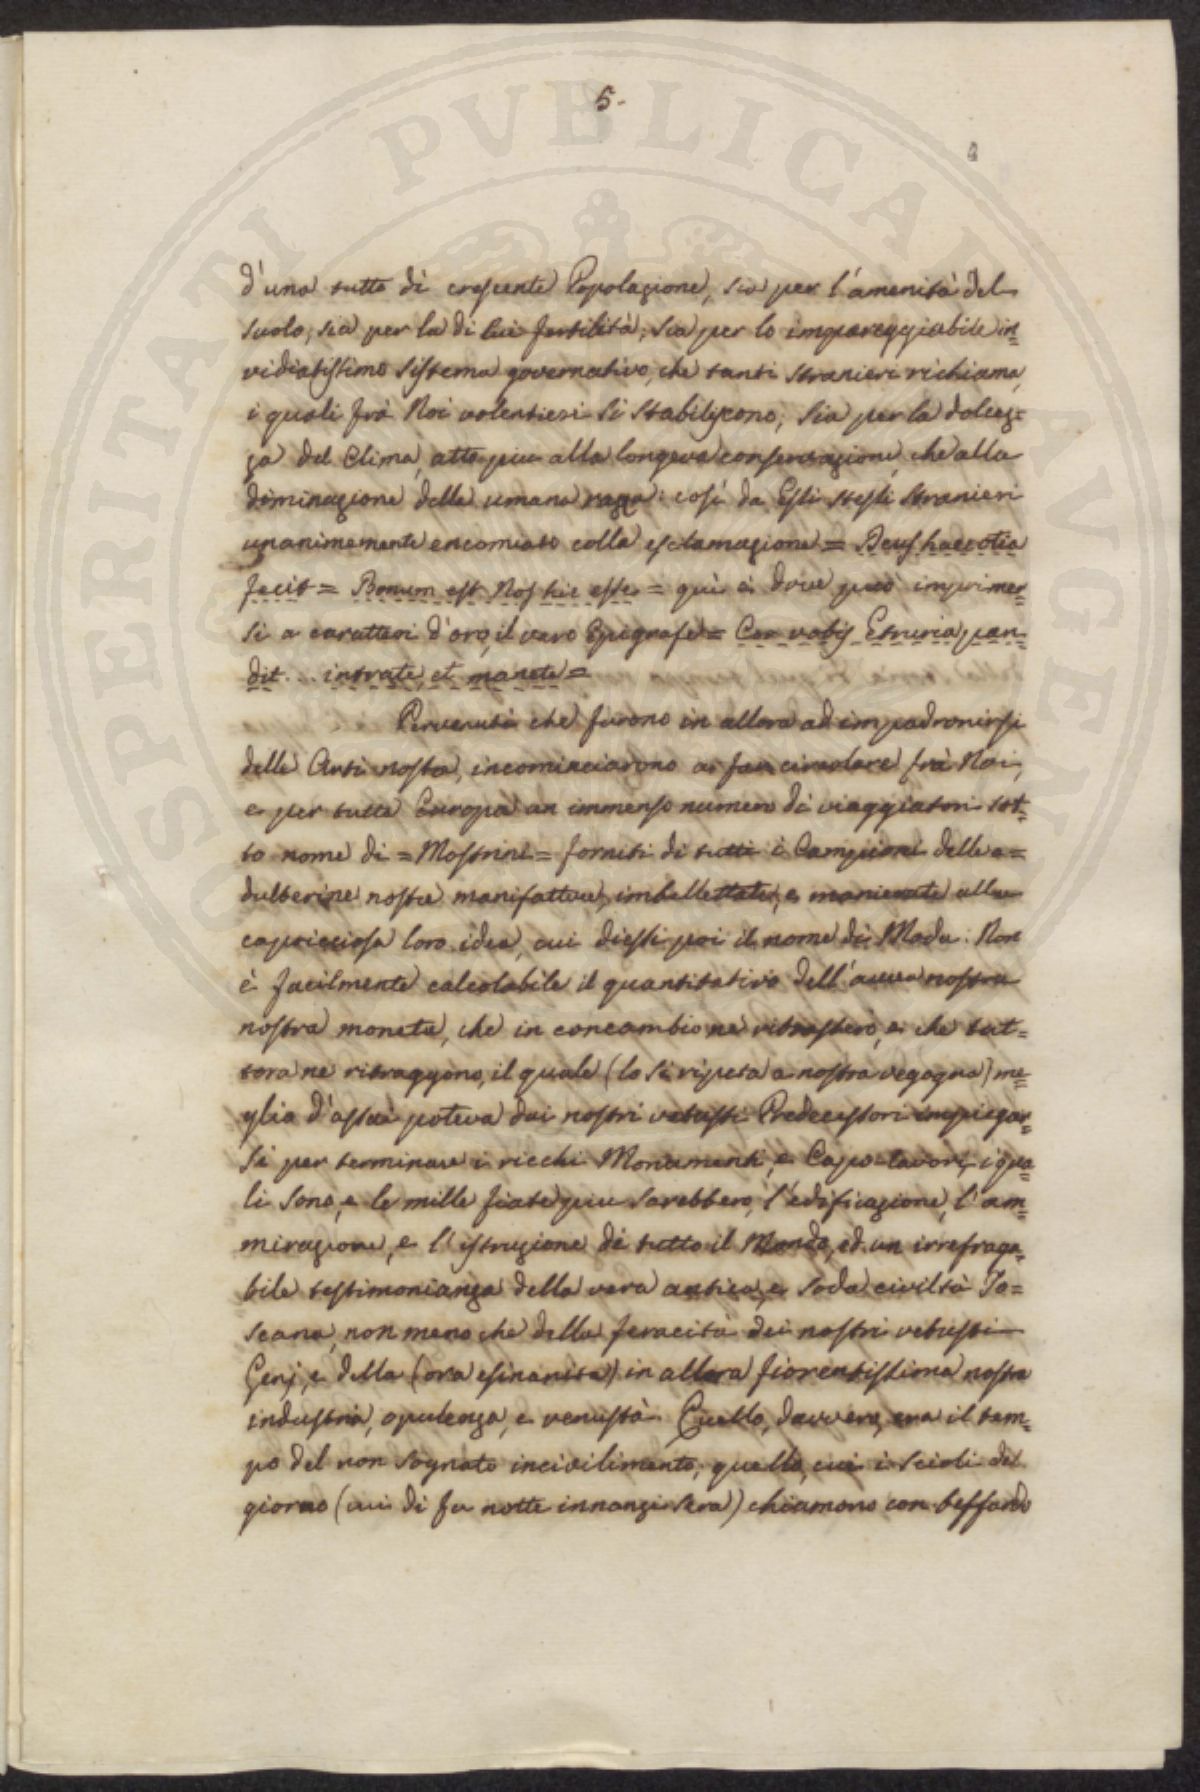 5.
4
d'una tutto dì crescente Popolazione, sia per l'amenità del
suolo, sia per la di lui fertilità; sia per lo impareggiabile in=
vidiatissimo sistema governativo, che tanti stranieri richiama,
i quali frà Noi volentieri si stabiliscono; sia per la dolcez=
za del Clima, atto piu alla longeva conservazione, che alla
diminuzione della umana razza: così da Essi stessi stranieri
unanimemente encomiato colla esclamazione = Deus haec otia
fecit = Bonum est Nos hic esse = quì è dove può imprimer=
si a caratteri d'oro, il vero Epigrafe = Cor vobis Etruria pan=
dit... intrate, et manete =
Pervenuti che furono in allora ad impadronirsi
delle Arti nostre, incominciarono a far circolare frà Noi,
e per tutta Europa un immenso numero di viaggiatori sot=
to nome di = Mostrini = forniti di tutti i Campioni delle a=
dulterine nostre manifatture, imbellettate, e manierate alla
capricciosa loro idea, cui diessi poi il nome di Moda. Non
è facilmente calcolabile il quantitativo dell' nostra
nostra moneta, che in concambio ne ritrassero, e che tut=
tora ne ritraggono, il quale (lo si ripeta a nostra vegogna) me=
glio d'assai poteva dai nostri vetusti Predecessori impiegar=
si per terminare i ricchi Monumenti, e Capo-lavori, i qua=
li sono, e le mille fiate piu sarebbero, l'edificazione, l'am=
mirazione, e l'istruzione di tutto il Mondo, ed un irrefraga=
bile testimonianza della vera antica, e soda civiltà To=
scana, non meno che della feracità dei nostri vetusti
Genj, e della (ora esinanita) in allora fiorentissima nostra
industria, opulenza, e venustà. Quello, davvero, era il tem=
po del non sognato incivilimento; quello, cui i scioli del
giorno (cui di fu notte innanzi sera) chiamono con beffardo